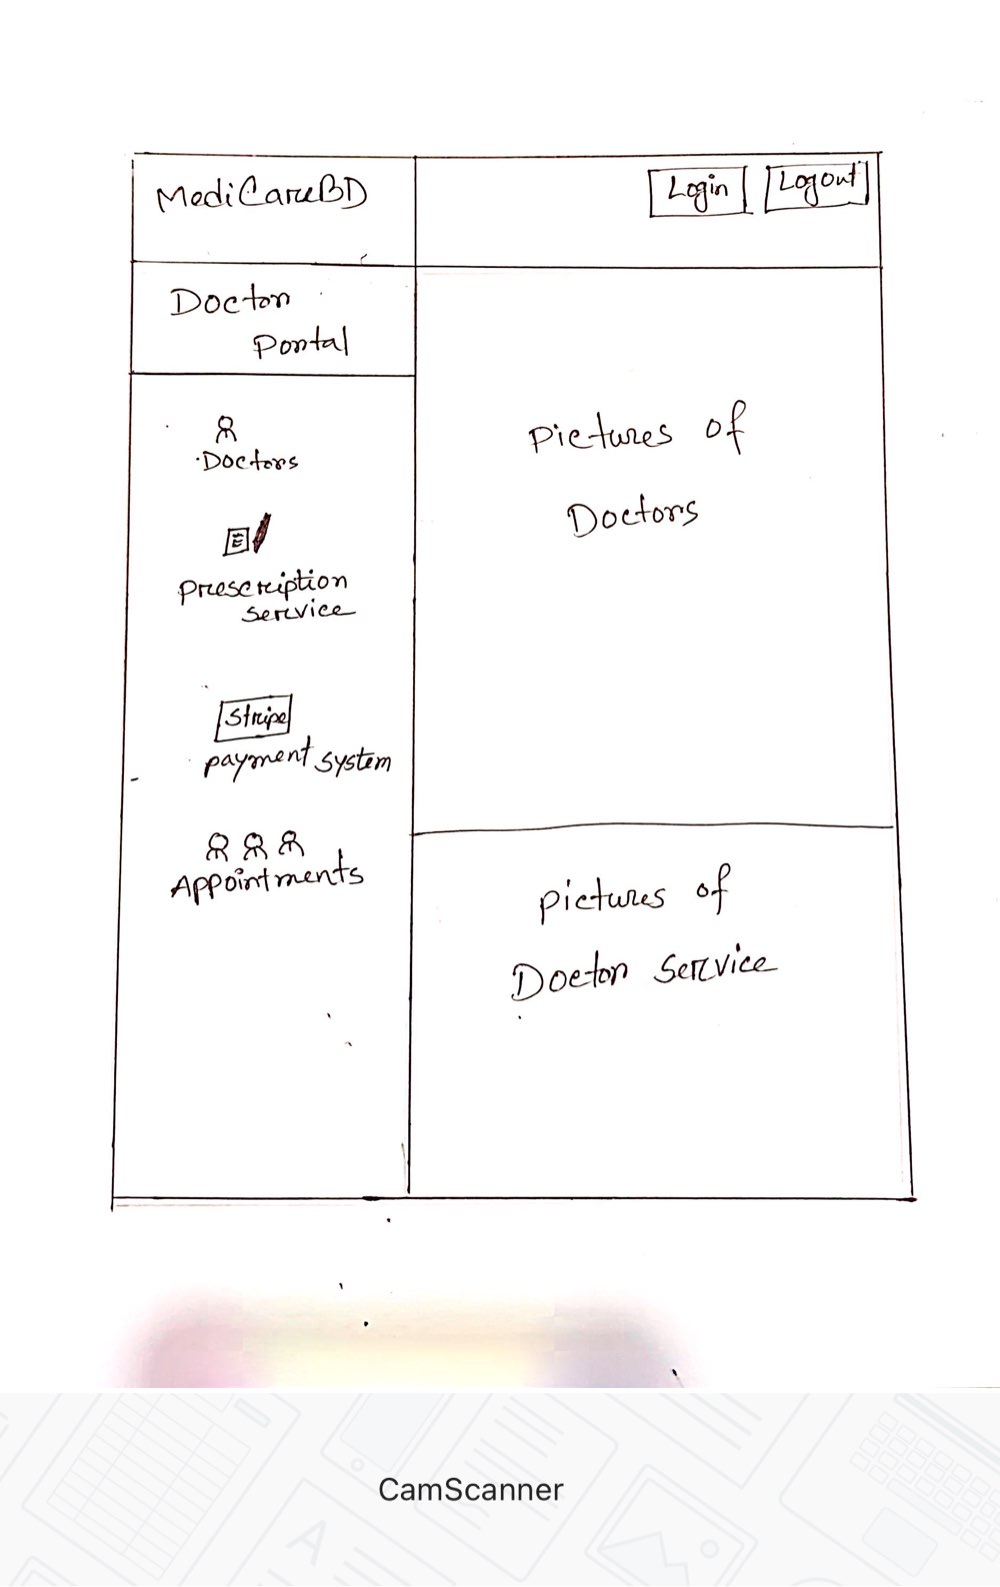 MediCareBD
Login
Logout
Doctor
Portal
Doctors
Prescription
service
Stripe
payment system
Appointments
Pictures of
Doctors
pictures of
Doctor Service
CamScanner